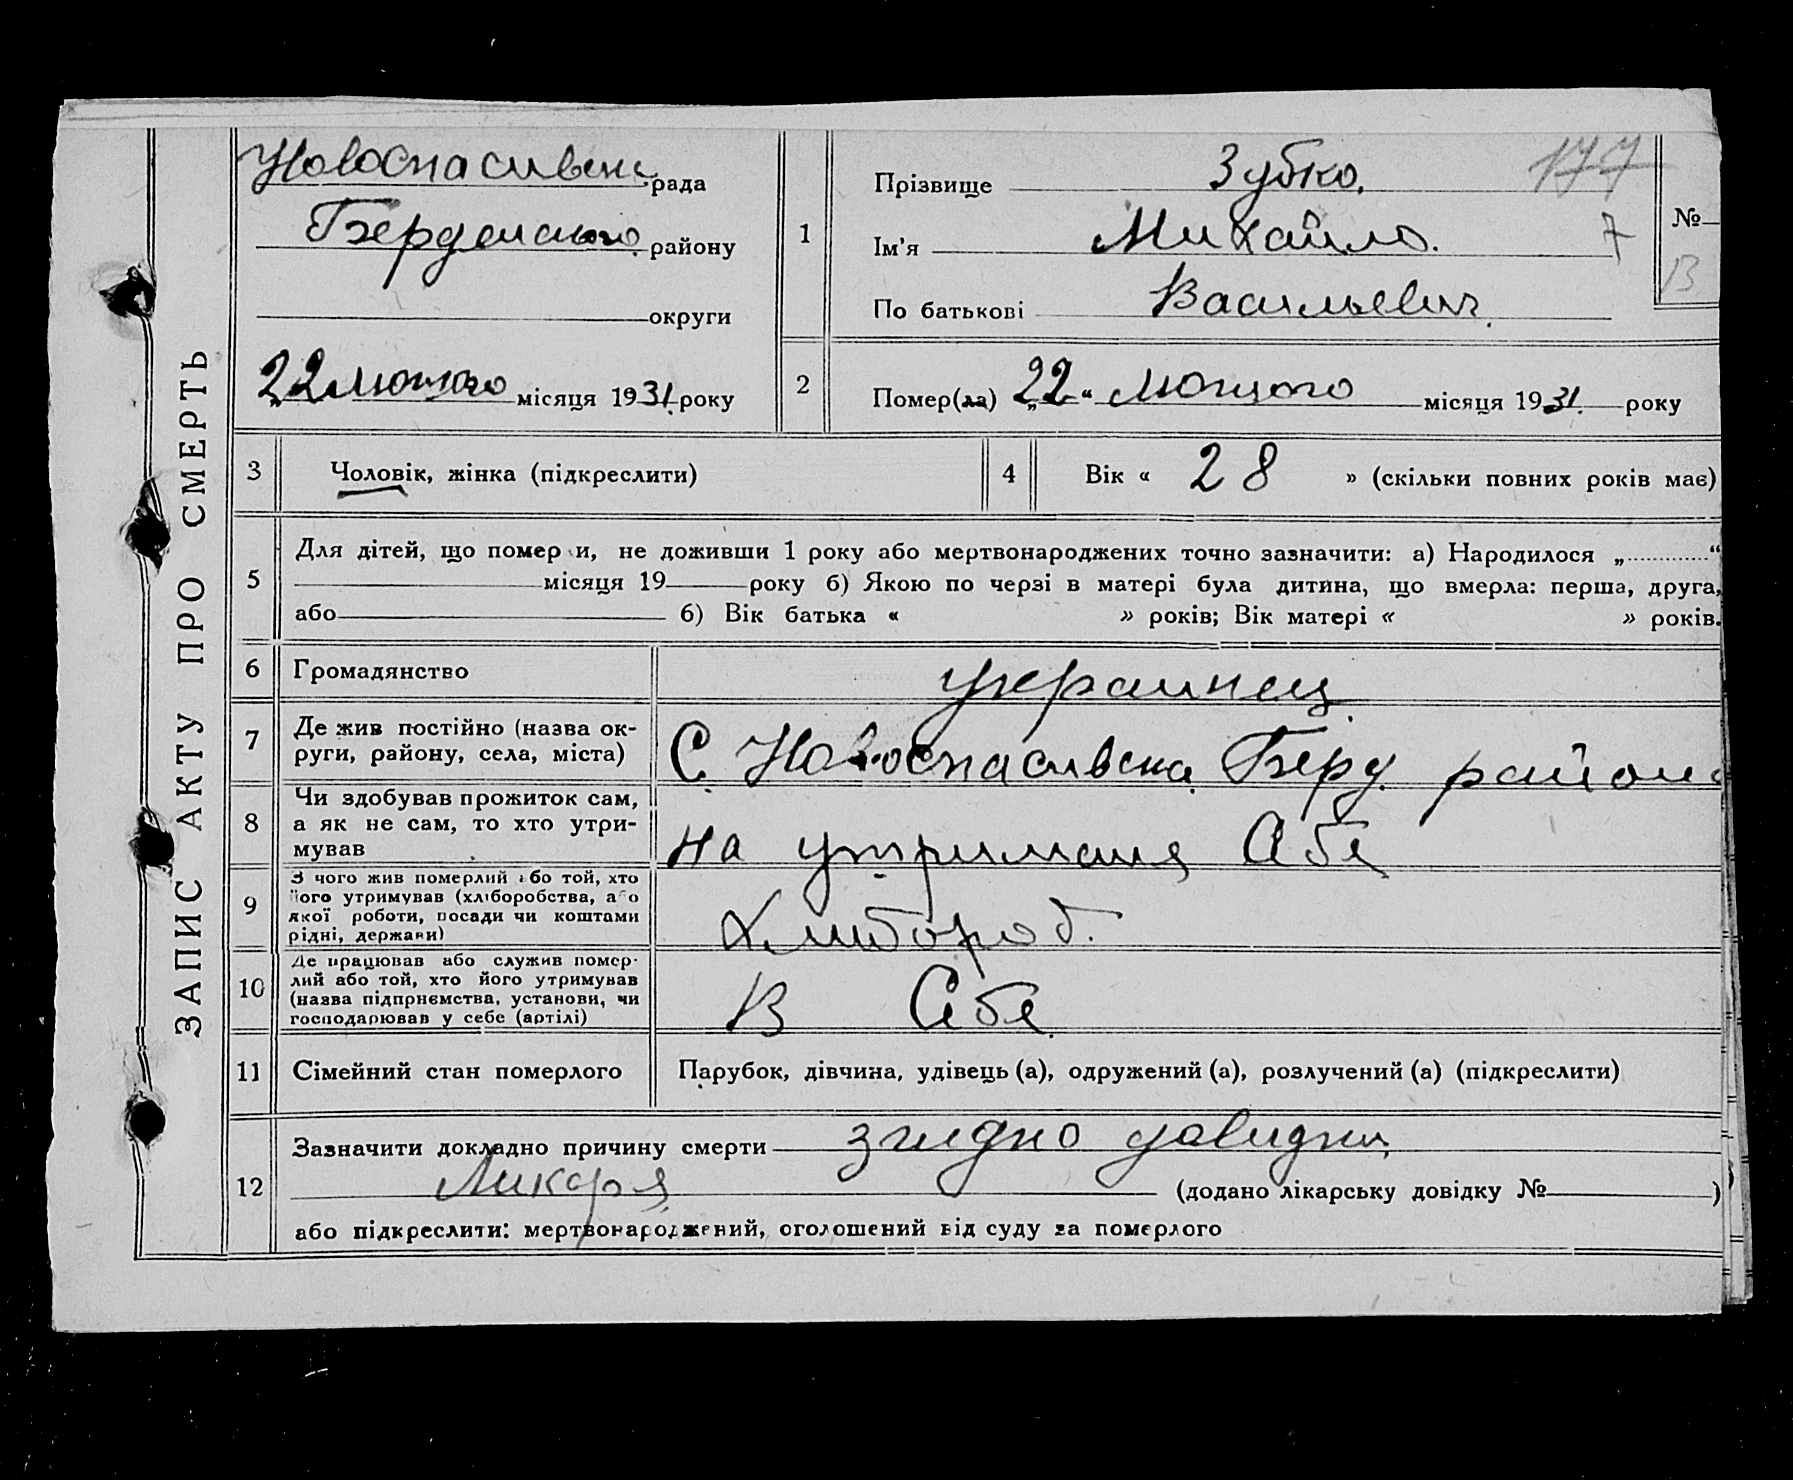 ЗАПИС АКТУ ПРО СМЕРТЬ
Новоспасивськ рада
Бердянського району
округи
„22 лютого місяця 1931 року
1
Прізвище Зубко.
177
Ім'я Михайло.
7
По батькові Васильевич.
№
13
2
Помер(ла) „22“ лютого місяця 1931. року
3 Чоловік, жінка (підкреслити)
4 Вік « 28 » (скільки повних років має)
5 Для дітей, що помер и, не доживши 1 року або мертвонароджених точно зазначити: а) Народилося „ “
місяця 19 року б) Якою по черзі в матері була дитина, що вмерла: перша, друга,
або б) Вік батька « » років; Вік матері « » років.
6 Громадянство украинец
7 Де жив постійно (назва ок-
руги, району, села, міста)
С. Новоспасивска Берд. район
8 Чи здобував прожиток сам,
а як не сам, то хто утри-
мував
на утриманя Себе
9 З чого жив померлий або той, хто
його утримував (хліборобства, або
якої роботи, посади чи коштами
рідні, держави)
Хлибороб.
10 Де працював або служив помер-
лий або той, хто його утримував
(назва підприємства, установи, чи
господарював у себе (артілі)
В Себе
11 Сімейний стан померлого Парубок, дівчина, удівець (а), одружений (а), розлучений (а) (підкреслити)
12 Зазначити докладно причину смерти згидно довидки
Ликаря (додано лікарську довідку № )
або підкреслити: мертвонароджений, оголошений від суду за померлого